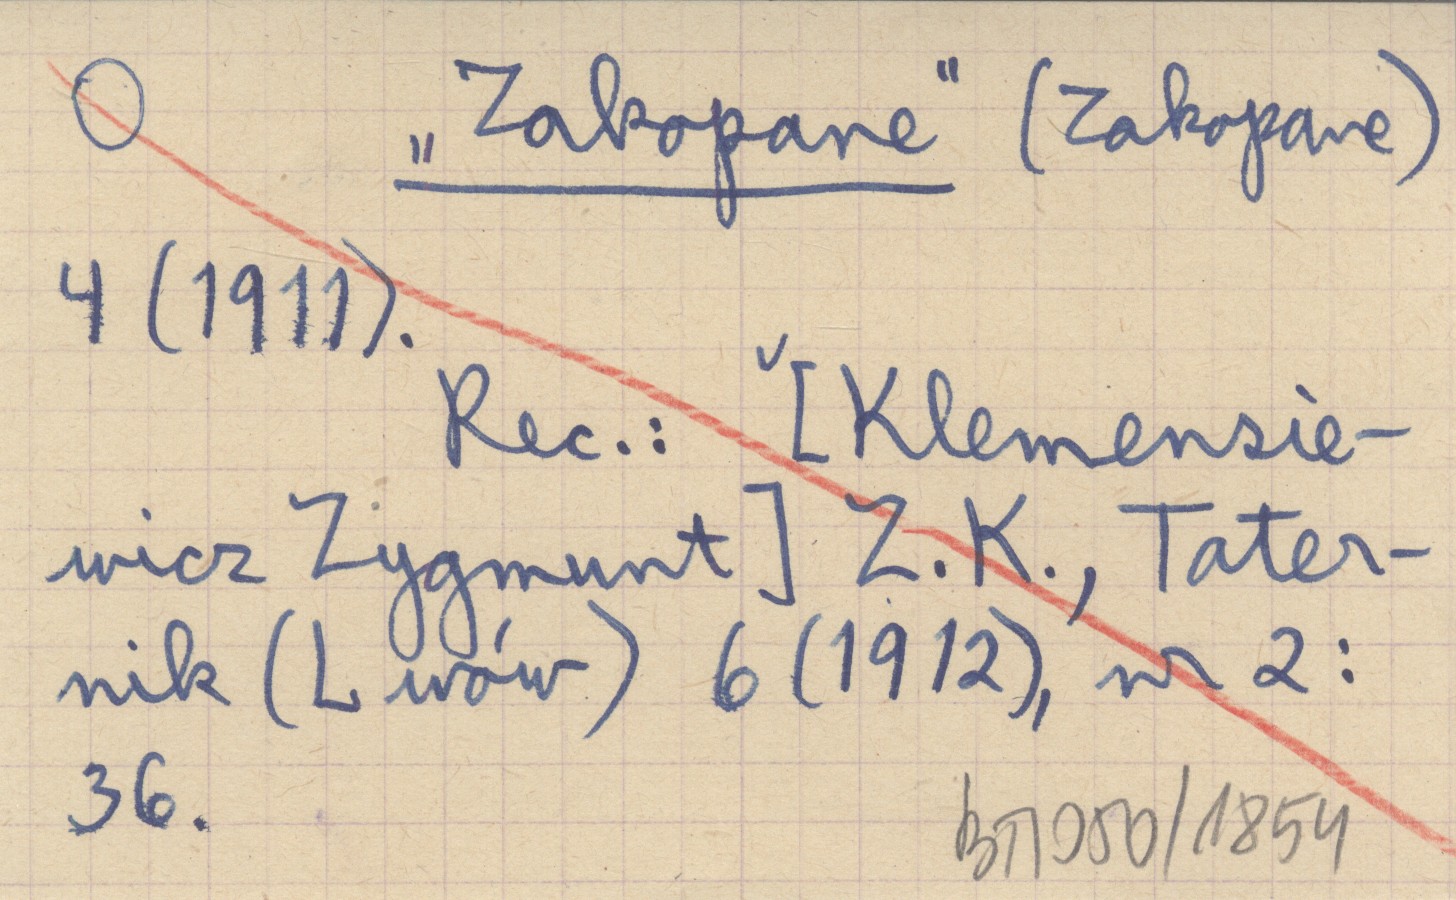 „Zakopane" (Zakopane)
4 (1911).
Rec.: [Klemensie-
wicz Zygmunt] Z.K., Tater-
nik (Lwów) 6 (1912), nr 2:
36.
/1854